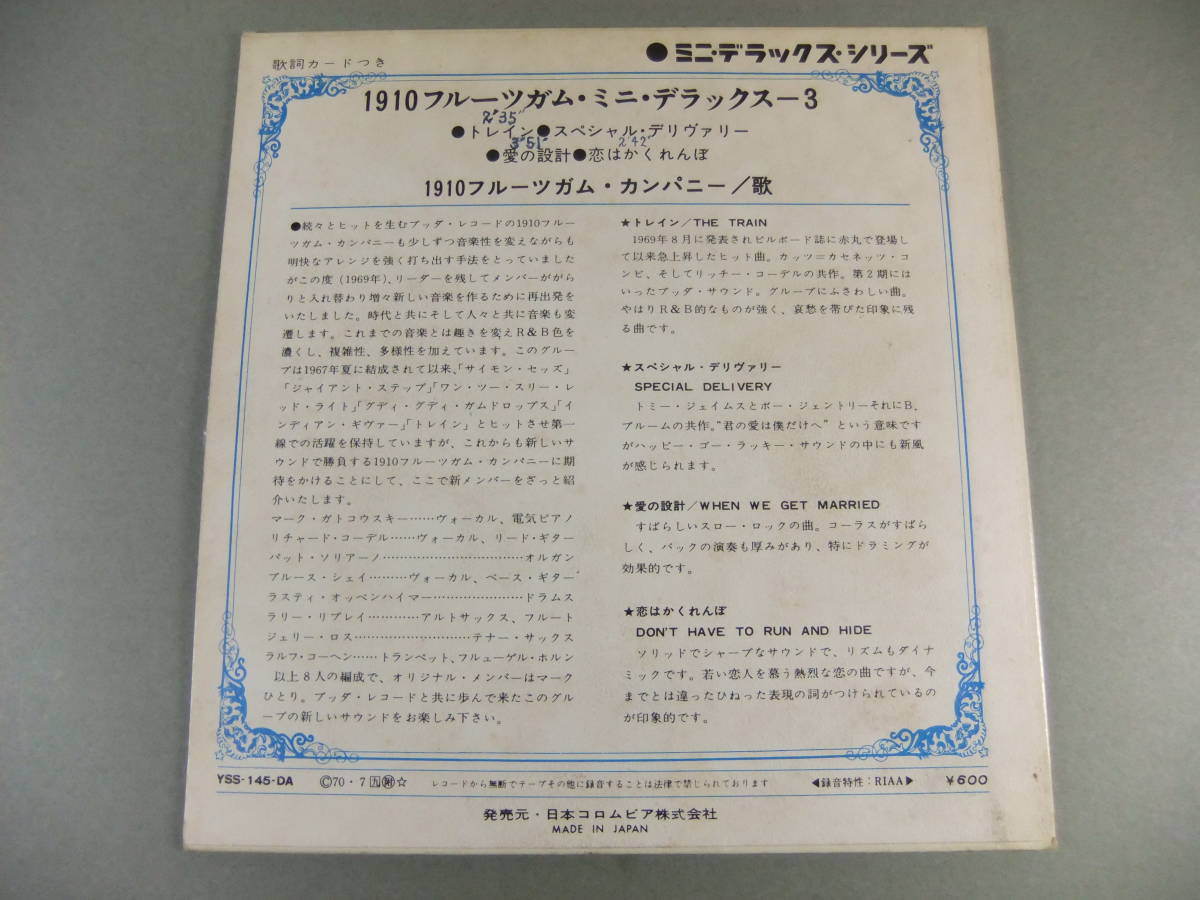 歌詞カードつき
●ミニ・デラックス・シリーズ
1910フルーツガム・ミニ・デラックス－3
2'35"
●トレイン●スペシャル・デリヴァリー
3'51" 2'42"
●愛の設計●恋はかくれんぼ
1910フルーツガム・カンパニー／歌
●続々とヒットを生むブッダ・レコードの1910フルー
ツガム・カンパニーも少しずつ音楽性を変えながらも
明快なアレンジを強く打ち出す手法をとっていました
がこの度（1969年）、リーダーを残してメンバーががら
りと入れ替わり増々新しい音楽を作るために再出発を
いたしました。時代と共にそして人々と共に音楽も変
遷します。これまでの音楽とは趣きを変えR＆B色を
濃くし、複雑性、多様性を加えています。このグルー
プは1967年夏に結成されて以来、「サイモン・セッズ」
「ジャイアント・ステップ」「ワン・ツー・スリー・レ
ッド・ライト」「グディ・グディ・ガムドロップス」「イ
ンディアン・ギヴァー」「トレイン」とヒットさせ第一
線での活躍を保持していますが、これからも新しいサ
ウンドで勝負する1910フルーツガム・カンパニーに期
待をかけることにして、ここで新メンバーをざっと紹
介いたします。
マーク・ガトコウスキー……ヴォーカル、電気ピアノ
リチャード・コーデル……ヴォーカル、リード・ギター
パット・ソリアーノ……………………………オルガン
ブルース・シェイ………ヴォーカル、ベース・ギター
ラスティ・オッペンハイマー…………………ドラムス
ラリー・リプレイ…………アルトサックス、フルート
ジェリー・ロス………………………テナー・サックス
ラルフ・コーヘン……トランペット、フルューゲル・ホルン
以上8人の編成で、オリジナル・メンバーはマーク
ひとり。ブッダ・レコードと共に歩んで来たこのグル
ープの新しいサウンドをお楽しみ下さい。
★トレイン／THE TRAIN
1969年8月に発表されビルボード誌に赤丸で登場し
て以来急上昇したヒット曲。カッツ＝カセネッツ・コ
ンビ、そしてリッチー・コーデルの共作。第2期には
いったブッダ・サウンド。グループにふさわしい曲。
やはりR＆B的なものが強く、哀愁を帯びた印象に残
る曲です。
★スペシャル・デリヴァリー
SPECIAL DELIVERY
トミー・ジェイムスとボー・ジェントリーそれにB,
ブルームの共作。“君の愛は僕だけへ”という意味です
がハッピー・ゴー・ラッキー・サウンドの中にも新風
が感じられます。
★愛の設計／WHEN WE GET MARRIED
すばらしいスロー・ロックの曲。コーラスがすばら
しく、バックの演奏も厚みがあり、特にドラミングが
効果的です。
★恋はかくれんぼ
DON'T HAVE TO RUN AND HIDE
ソリッドでシャープなサウンドで、リズムもダイナ
ミックです。若い恋人を慕う熱烈な恋の曲ですが、今
までとは違ったひねった表現の詞がつけられているの
が印象的です。
YSS-145-DA ©70・7 ☆ レコードから無断でテープその他に録音することは法律で禁じられております ◀録音特性：RIAA▶ ¥600
発売元・日本コロムビア株式会社
MADE IN JAPAN